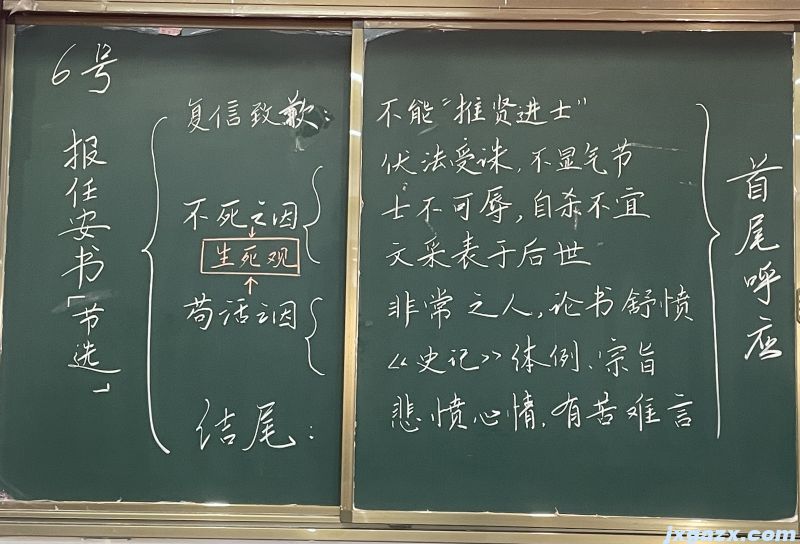 6号
报任安书「节选」
复信致歉
不死之因
生死观
苟活之因
结尾:
不能“推贤进士”
伏法受诛,不显气节
士不可辱,自杀不宜
文采表于后世
非常之人,论书舒愤
《史记》体例、宗旨
悲愤心情,有苦难言
首尾呼应
jxgazx.com